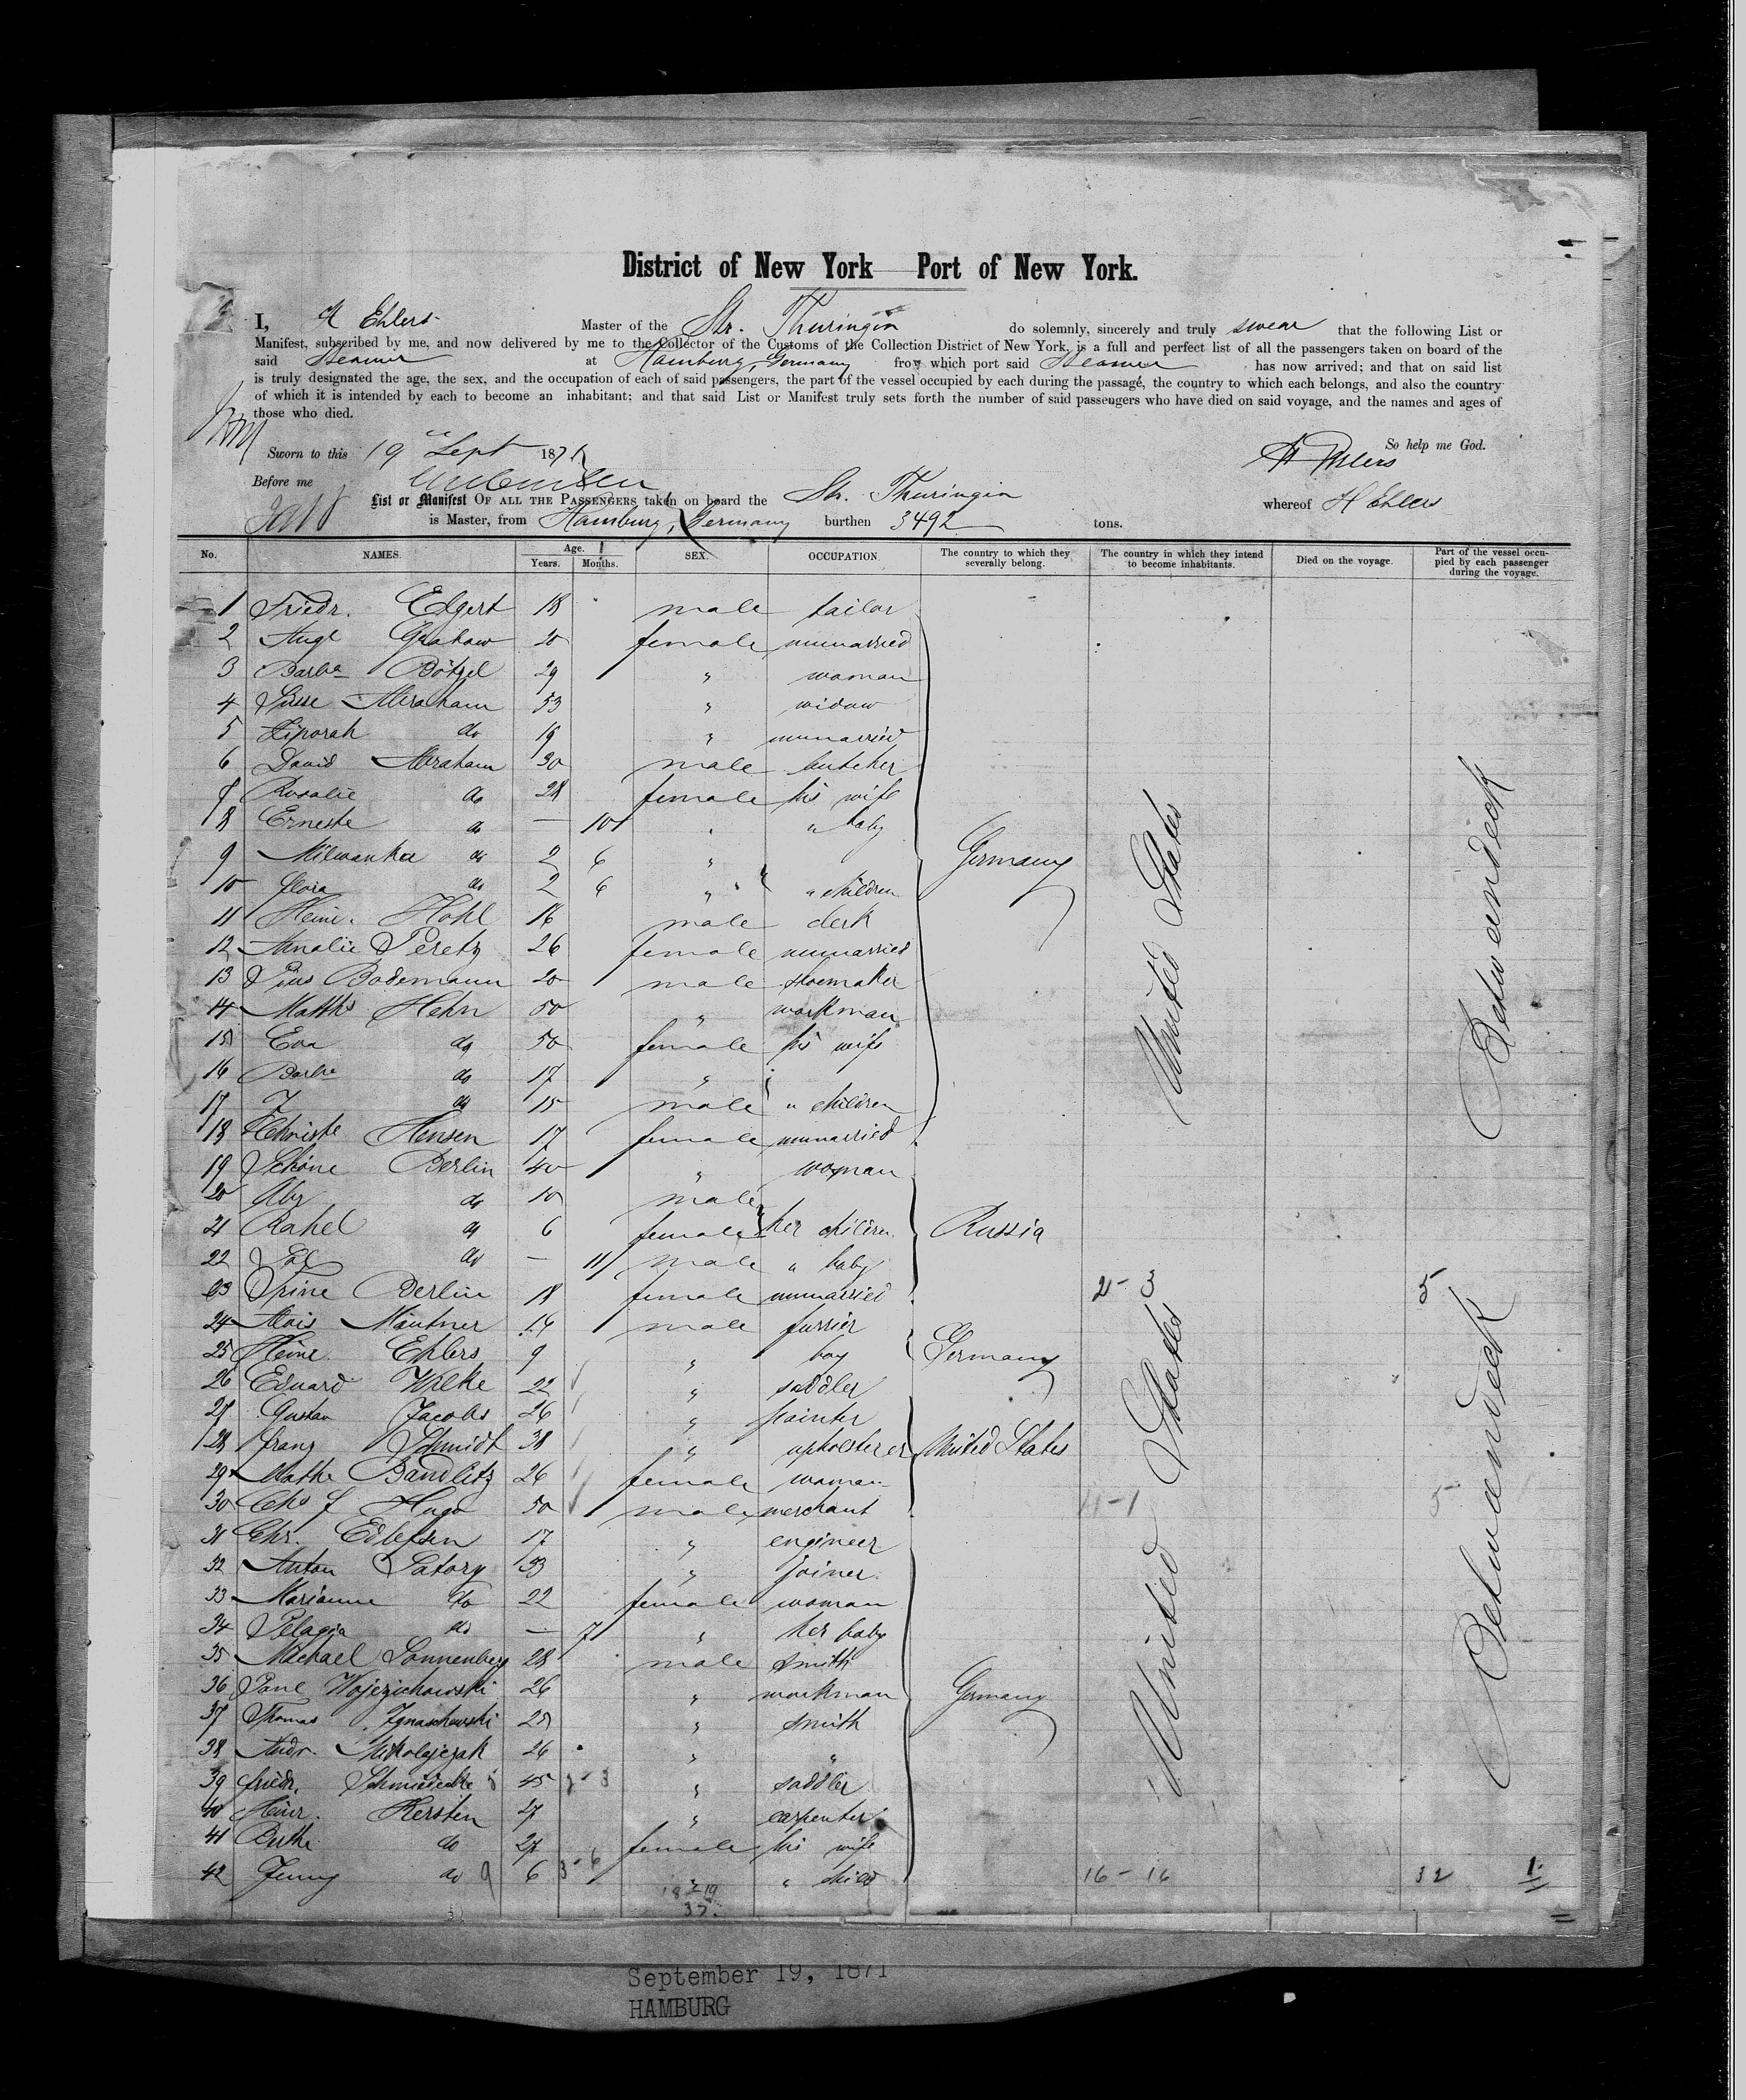 District of New York Port of New York.
I, H Ehlers Master of the Str. Thuringia do solemnly, sincerely and truly swear that the following List or
Manifest, subscribed by me, and now delivered by me to the Collector of the Customs of the Collection District of New York, is a full and perfect list of all the passengers taken on board of the
said Steamer at Hamburg, Germany from which port said Steamer has now arrived; and that on said list
is truly designated the age, the sex, and the occupation of each of said passengers, the part of the vessel occupied by each during the passage, the country to which each belongs, and also the country
of which it is intended by each to become an inhabitant; and that said List or Manifest truly sets forth the number of said passengers who have died on said voyage, and the names and ages of
those who died.
So help me God.
Sworn to this 19 Sept 1871
H Ehlers
Before me
List or Manifest OF ALL THE PASSENGERS taken on board the Str. Thuringia whereof H Ehlers
is Master, from Hamburg, Germany burthen 3492 tons.
No. NAMES. Age. Years. Months. SEX. OCCUPATION. The country to which they severally belong. The country in which they intend to become inhabitants. Died on the voyage. Part of the vessel occupied by each passenger during the voyage.
1 Friedr. Elgert 18 male tailor
2 Augt Grahow 20 female unmarried
3 Barba Bötzel 29 " woman
4 Abraham 53 " widow
5 Ziporah do 19 " unmarried
6 David Abraham 30 male butcher
7 Rosalie do 28 female his wife
8 Erneste do — 10 " " baby
9 Milwanka do 2 6 " Germany
10 flora do 2 6 " " children
11 Heinr. Hohl 16 male clerk
12 Amalie Peretz 26 female unmarried
13 Pius Bodemann 20 male shoemaker
14 Matths Hehn 50 " workman
15 Eva do 50 female his wife
16 Barba do 17 "
17 J do 15 male " children
18 Christe Hensen 17 female unmarried
19 Schöne Berlin 40 " woman
20 Aby do 10 male
21 Rahel do 6 female her children Russia
22 do — 11 male " baby
23 Trine Berlin 18 female unmarried 2-3 5
24 Alois Mautner 14 male furrier
25 Heinr. Ehlers 9 " boy Germany
26 Eduard Wilke 22 " saddler
27 Gustav Jacobs 26 " painter
28 franz Schmidt 38 " upholsterer United States
29 Mathe Bandlitz 26 female woman
30 Chs f Hugo 50 male merchant 4-1 5
31 Chr. Edlefsen 17 " engineer
32 Anton Satory 33 " joiner
33 Marianne do 22 female woman
34 Pelagia do — 7 " her baby
35 Michael Sonnenberg 28 male smith
36 Paul Wojezichowski 26 " workman Germany
37 Thomas Ignaschewski 25 " smith
38 Andr. Mikolajczak 26 " "
39 friedr. Schmiedecke 45 " saddler
40 Heinr. Kersten 27 " carpenter
41 Berthe do 27 female his wife
42 Jenny do 6 " " child 16-16 32 1
United States
United States
Betweendeck
Betweendeck
18 19
37
September 19, 1871
HAMBURG